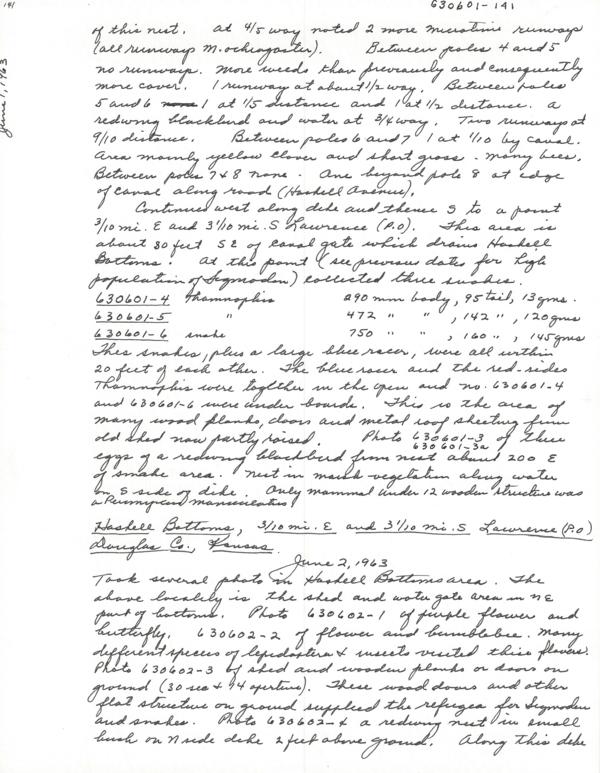 141
630601-141
June 1, 1963
of this nest. At 4/5 way noted 2 more microtine runways
(all runways M. ochrogaster). Between poles 4 and 5
no runways. More weeds than previously and consequently
more cover. 1 runway at about 1/2 way. Between poles
5 and 6 1 at 1/5 distance and 1 at 1/2 distance. A
redwing blackbird and water at 3/4 way. Two runways at
9/10 distance. Between poles 6 and 7 1 at 1/10 by canal.
Area mainly yellow clover and short grass. Many bees.
Between poles 7 & 8 none. One beyond pole 8 at edge
of canal along road (Haskell Avenue).
Continued west along dike and thence S to a point
3/10 mi. E and 3 1/10 mi. S Lawrence (P.O). This area is
about 30 feet SE of canal gate which drains Haskell
Bottoms. At this point (see previous dates for high
population of Sigmodon) collected three snakes.
630601-4 Thamnophis 290 mm body, 95 tail, 13 gms.
630601-5 " 472 " " , 142 " , 120 gms
630601-6 snake 750 " " , 160 " , 145 gms
Thes snakes, plus a large blue racer, were all within
20 feet of each other. The blue racer and the red-sides
Thamnophis were together in the open and no. 630601-4
and 630601-6 were under boards. This is the area of
many wood planks, doors and metal roof sheeting from
old shed now partly raised. Photo 630601-3 of three
630601-3a
eggs of a redwing blackbird from nest about 200 E
of snake area. Nest in marsh vegetation along water
on S side of dike. Only mammal under 12 wooden structure was
a Peromyscus maniculatus
Haskell Bottoms, 3/10 mi. E and 3 1/10 mi. S Lawrence (P.O)
Douglas Co., Kansas.
June 2, 1963
Took several photo in Haskell Bottoms area. The
above locality is the shed and water gate area in NE
part of bottoms. Photo 630602-1 of purple flower and
butterfly. 630602-2 of flower and bumblebee. Many
different species of lepidoptera & insects visited this flower.
Photo 630602-3 of shed and wooden planks or doors on
ground (30 sec & 14 aperture). These wood doors and other
flat structure on ground supplied the refugea for Sigmodon
and snakes. Photo 630602-4 a redwing nest in small
bush on N side dike 2 feet above ground. Along this dike